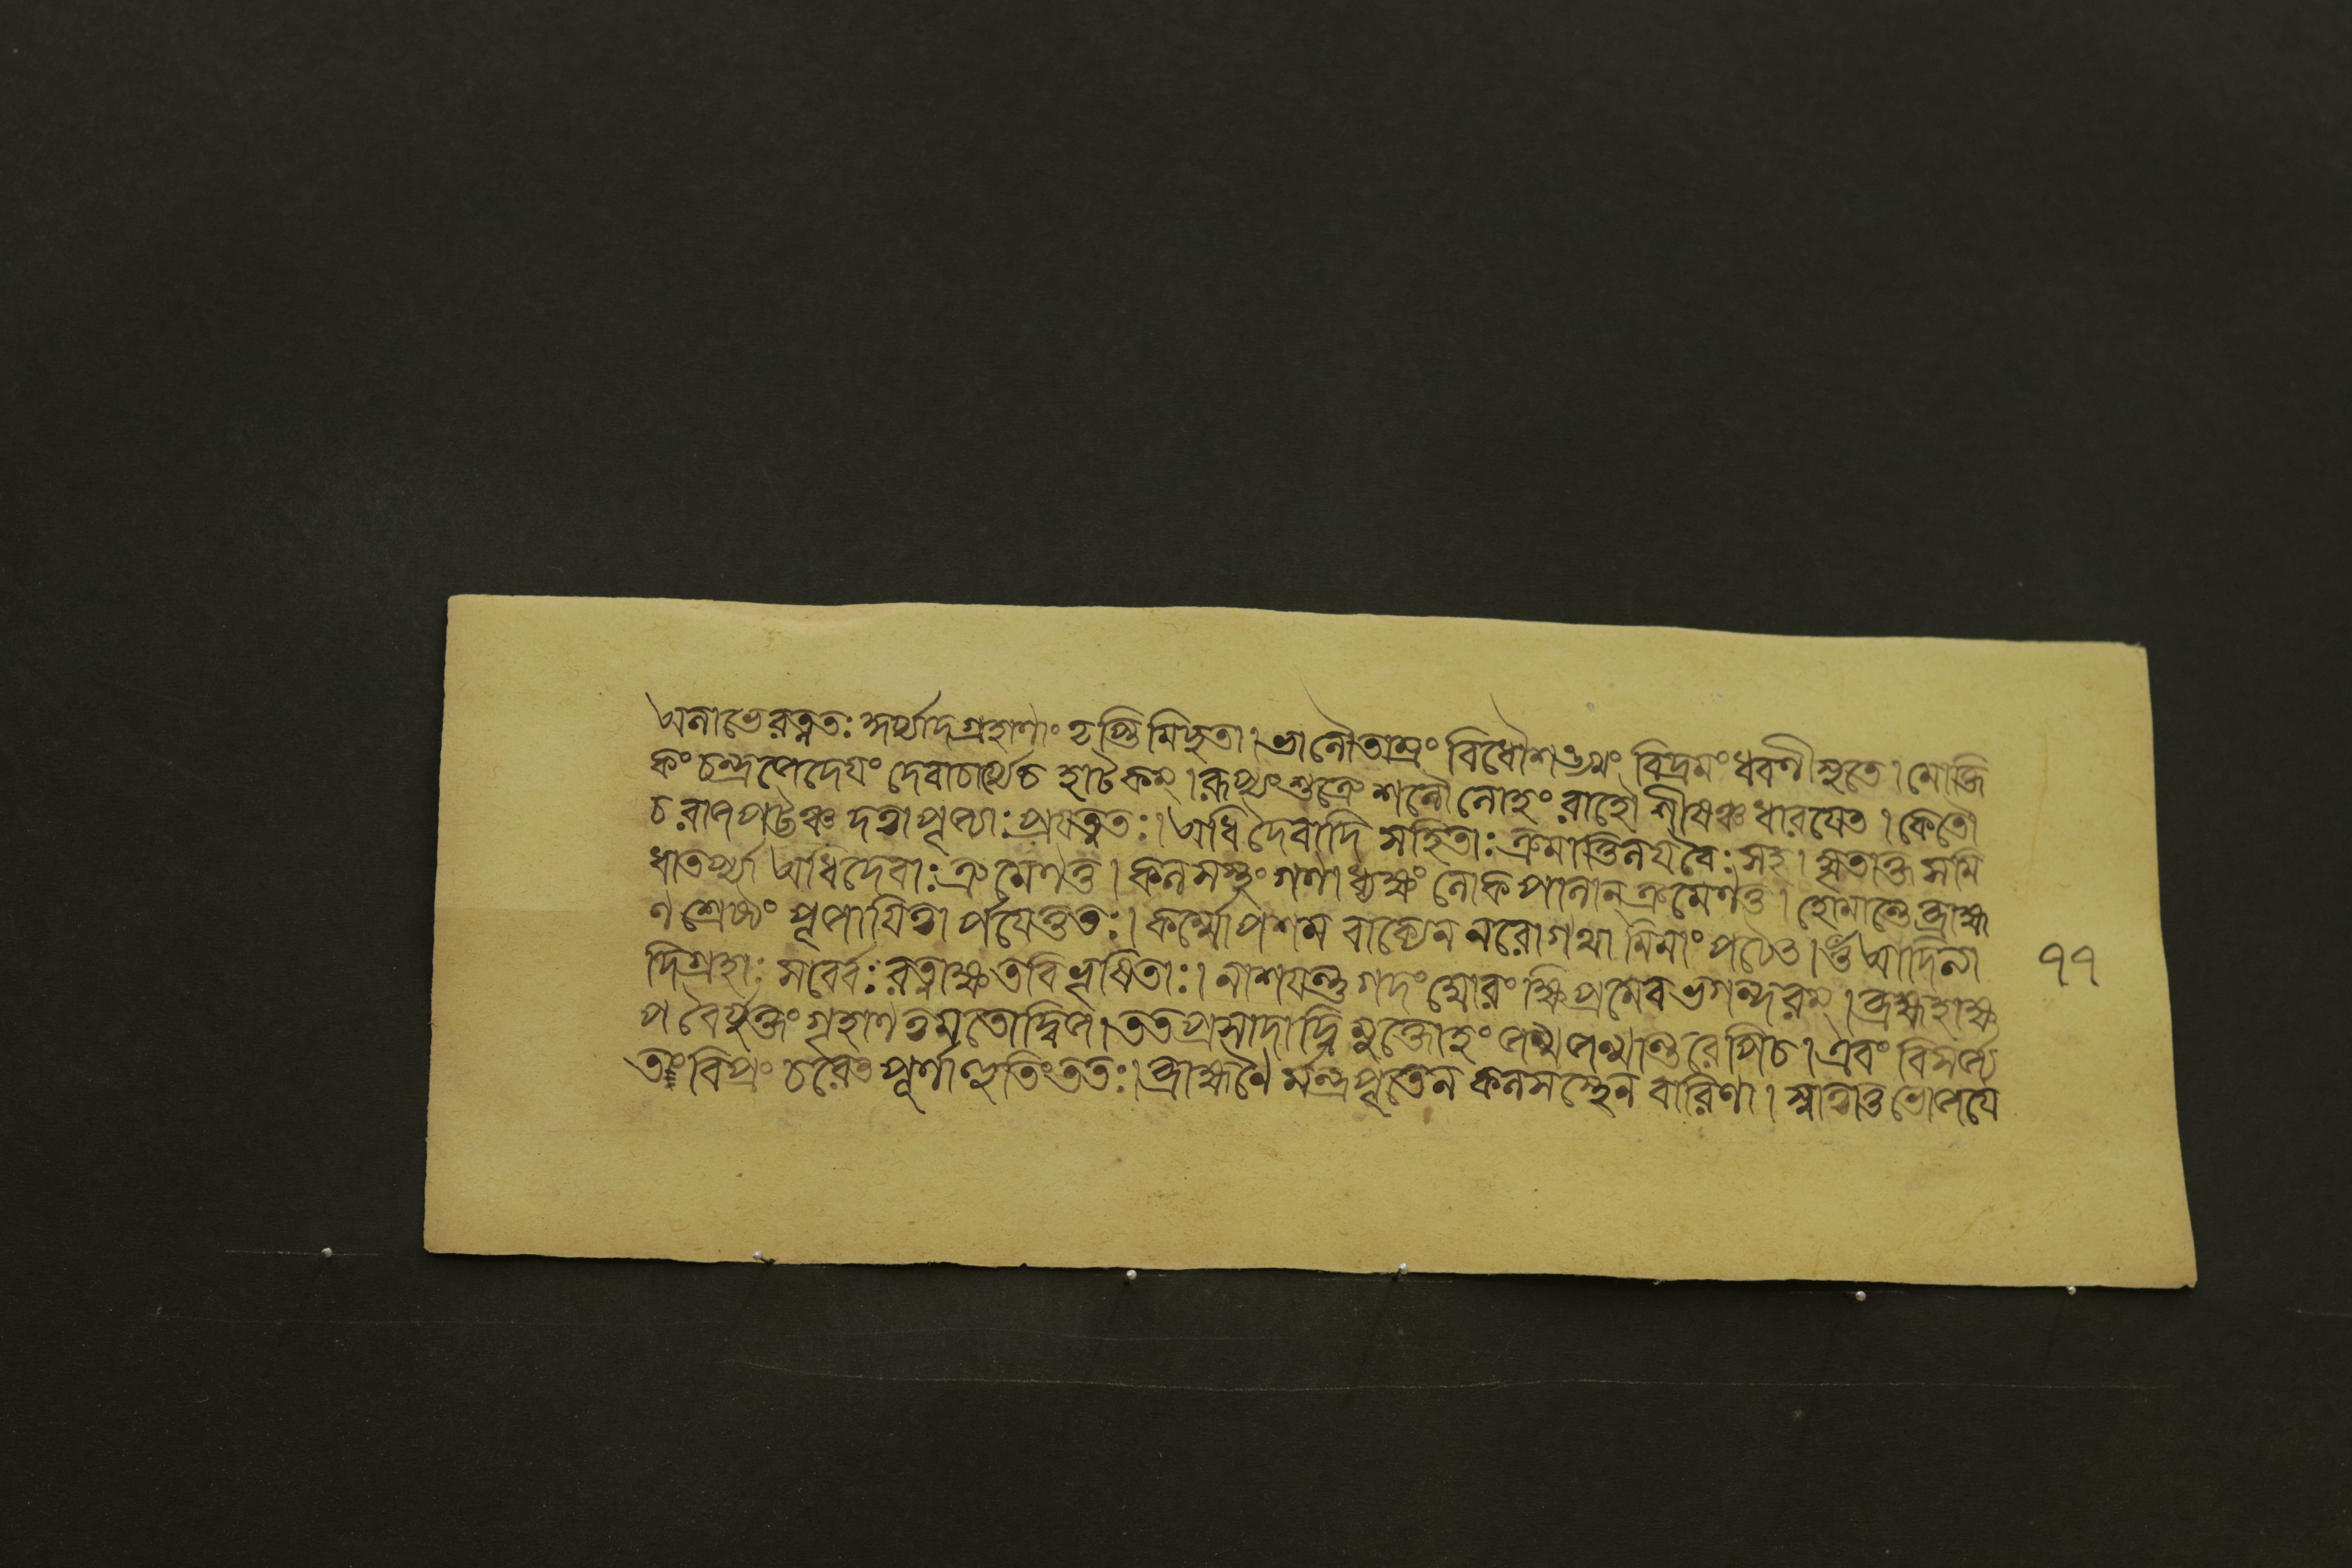 অলাভে রত্নতঃ সূর্য্যাদিগ্রহাণাং তৃপ্তিমিচ্ছতা। ভানৌ তাম্রং বিধৌ শঙ্খং বিদ্রুমং ধরণীসুতে। মৌক্তি
কং চন্দ্রজে দেয়ং দেবাচার্য্যে চ হাটকম্। রূপ্যং শুক্রে শনৌ লোহং রাহৌ শীষঞ্চ ধারয়েৎ। কেতৌ
চ রাজপট্টঞ্চ দত্বা পূজ্যাঃ প্রযত্নতঃ। অধিদৈবাদি সহিতাঃ ক্রমাত্তিলযবৈঃ সহ। ঘৃতাক্ত সমি
ধাতর্প্য অধিদেবাঃ ক্রমেণ তু। কলসস্থং গণাধ্যক্ষং লোকপালান্ ক্রমেণ তু। হোমান্তে ব্রাহ্ম
ণ শ্রেষ্ঠং পূজায়িত্বার্পয়েত্ততঃ। কর্ম্মোপশম বাক্যেন নরো গাথামিমাং পঠেৎ। ওঁ আদিত্যা
দিগ্রহাঃ সর্ব্বেঃ রত্নাক্ষতবিভূষিতাঃ। নাশয়ন্তু গদং ঘোরং ক্ষিপ্রমেব ভগন্দরম্। ব্রহ্মহাক্ষ
প বৈর্যুক্তং গৃহাণ ত্বমতো দ্বিজ। তৎপ্রসাদাদ্বিমুক্তোহং জন্মজন্মান্তরেপি চ। এবং বিসর্জ্য
তং বিপ্রং চরেৎ পূর্ণাহুতিং ততঃ। ব্রাহ্মণৈর্মন্ত্রপূতেন কলসস্থেন বারিণা। স্নাত্বা তু ভোজয়ে
৭৭